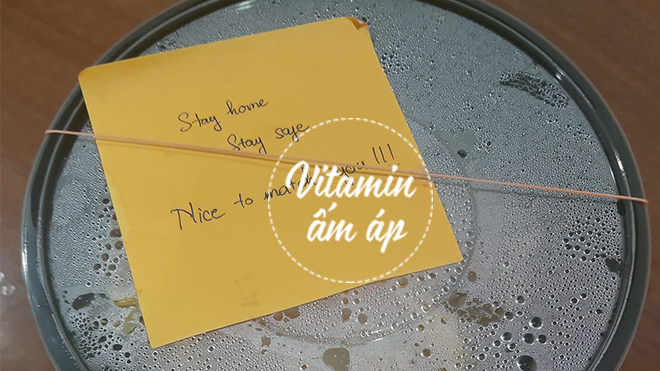 Stay home
Stay saje
Nice to match you!!!
Vitamin
ấm áp